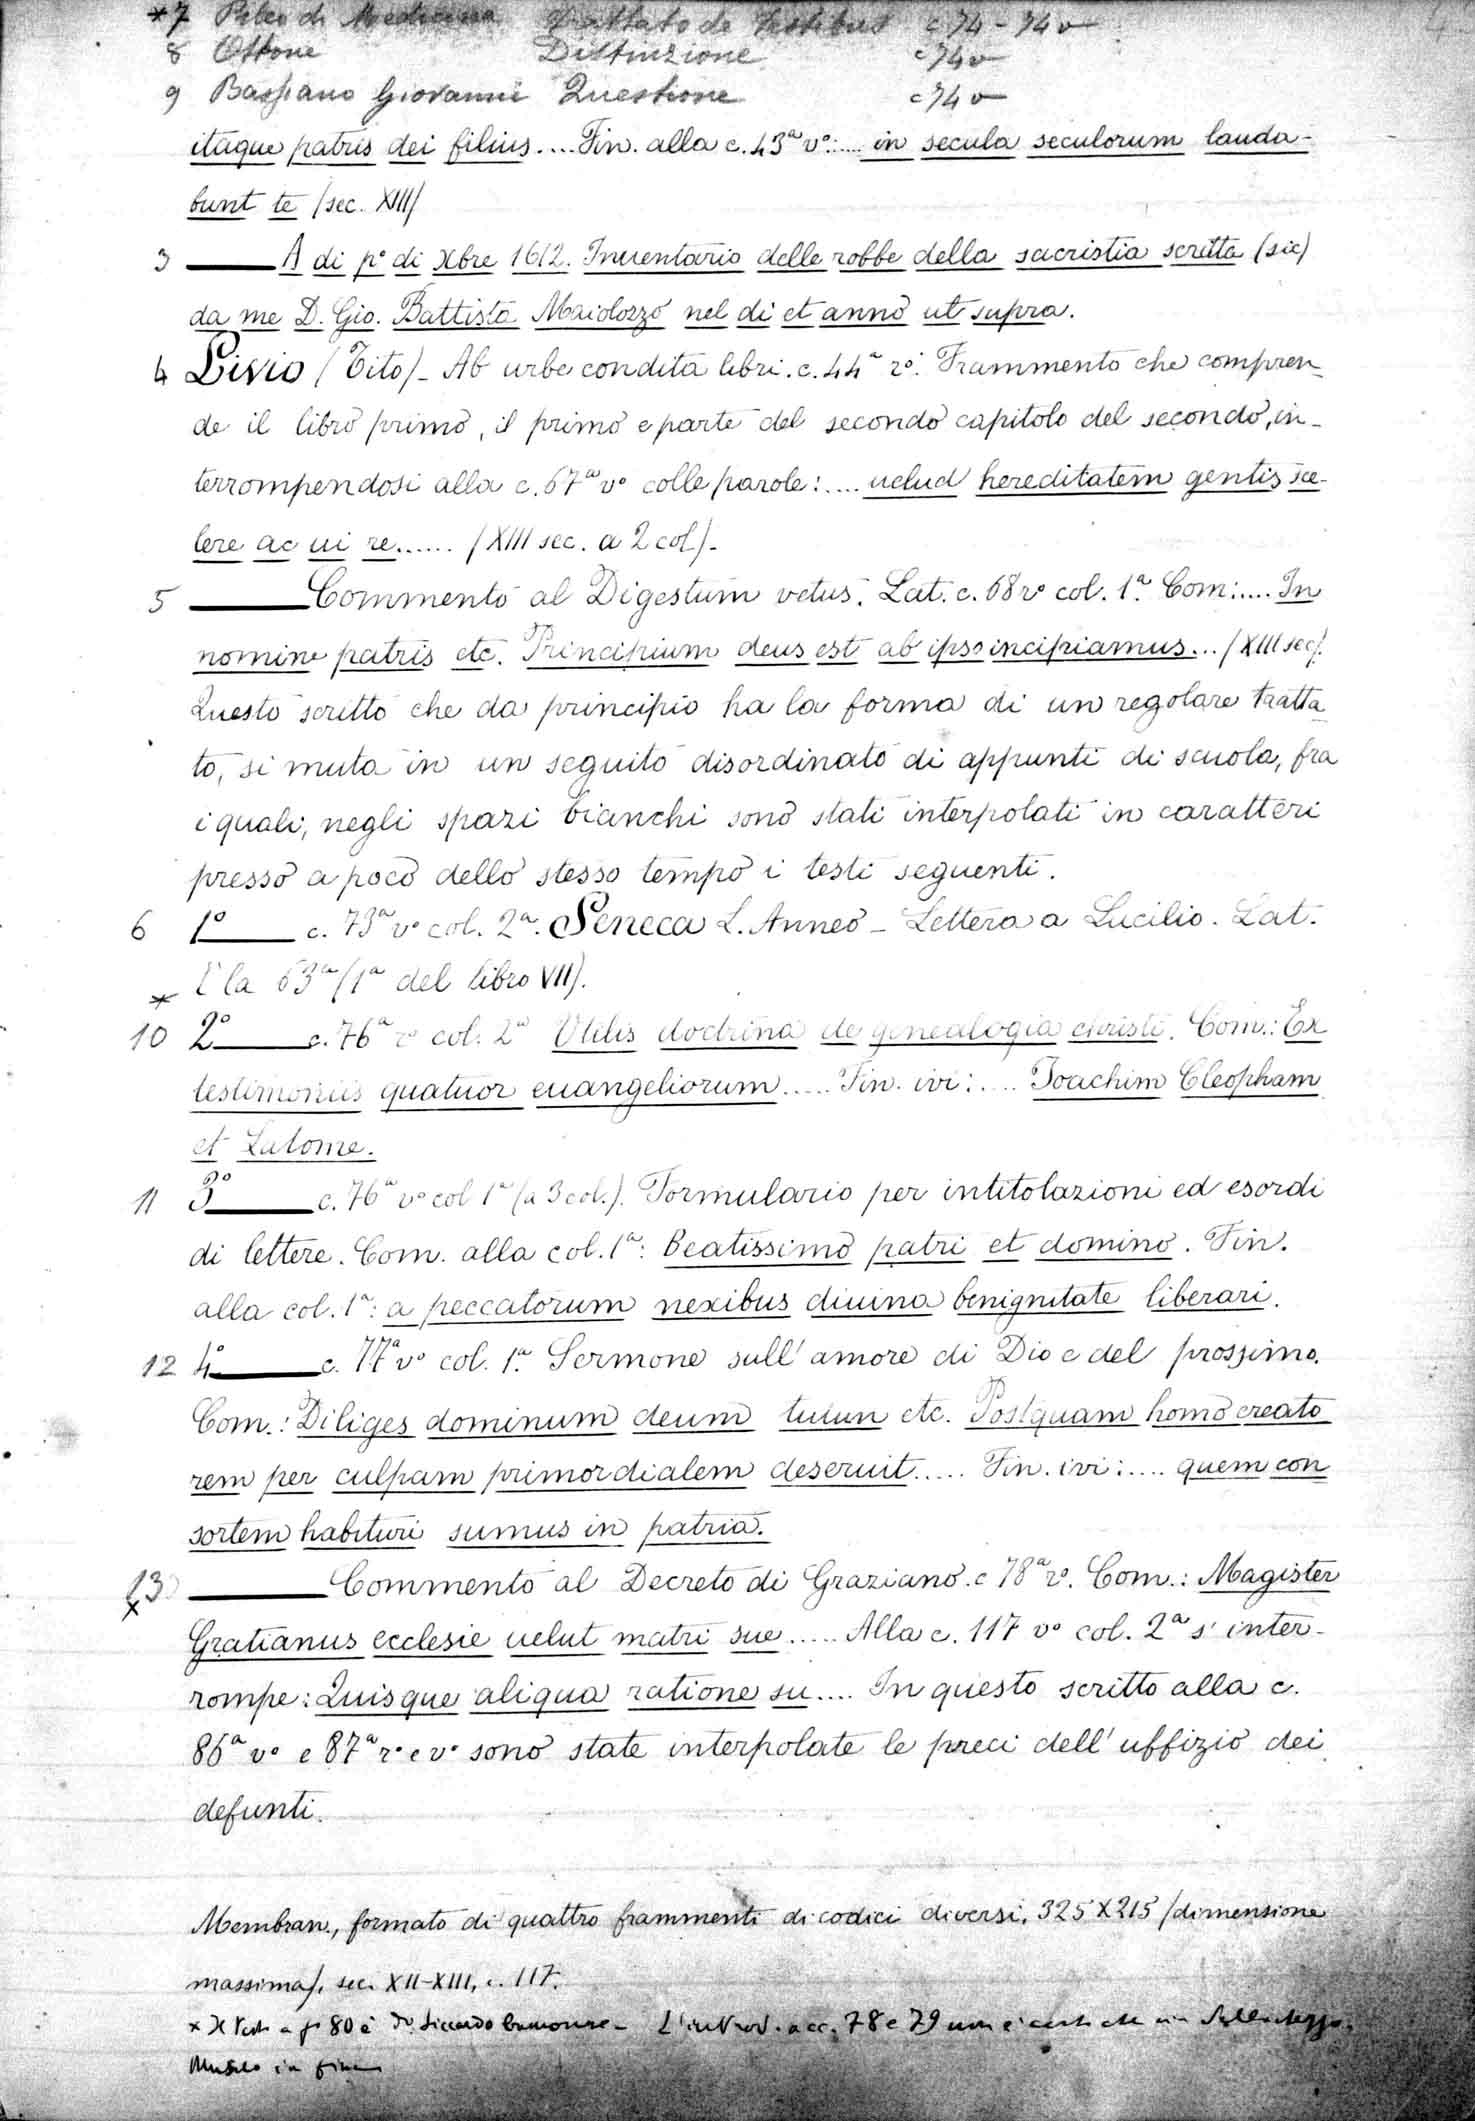 *7 Pileo di Medicina Trattato de Testibus c 74 - 74 v
8 Ottone Distinzione c 74 v
9 Bassiano Giovanni Questione c 74 v
itaque patris dei filius.... Fin. alla c. 43ª vº:.... in secula seculorum lauda-
bunt te (sec. XIII)
3 A di pº di Xbre 1612. Inuentario delle robbe della sacristia scritta (sic)
da me D. Gio. Battista Maiolozzo nel di et anno ut supra.
4 Livio (Tito) - Ab urbe condita libri. c. 44ª rº. Frammento che compren-
de il libro primo, il primo e parte del secondo capitolo del secondo, in-
terrompendosi alla c. 67ª vº colle parole:.... uelud hereditatem gentis sce-
lere ac ui re...... (XIII sec. a 2 col).
5 Commento al Digestum vetus. Lat. c. 68 rº col. 1ª. Com:.... In
nomine patris etc. Principium deus est ab ipso incipiamus... (XIII sec).
Questo scritto che da principio ha la forma di un regolare tratta-
to, si muta in un seguito disordinato di appunti di scuola, fra
i quali, negli spazi bianchi sono stati interpolati in caratteri
presso a poco dello stesso tempo i testi seguenti.
6 1º c. 73ª vº col. 2ª. Seneca L. Anneo - Lettera a Lucilio. Lat.
E la 63ª (1ª del libro VII).
*
10 2º c. 76ª rº col. 2ª Utilis doctrina de genealogia christi. Com.: Ex
testimoniis quatuor euangeliorum..... Fin. ivi:.... Joachim Cleopham
et Salome.
11 3º c. 76ª vº col 1ª (a 3 col.). Formulario per intitolazioni ed esordi
di lettere. Com. alla col. 1ª: Beatissimo patri et domino. Fin.
alla col. 1ª: a peccatorum nexibus diuina benignitate liberari.
12 4º c. 77ª vº col. 1ª. Sermone sull' amore di Dio e del prossimo.
Com.: Diliges dominum deum tuum etc. Postquam homo creato
rem per culpam primordialem deseruit..... Fin. ivi:.... quem con
sortem habituri sumus in patria.
13 Commento al Decreto di Graziano. c 78ª rº. Com.: Magister
x
Gratianus ecclesie uelut matri sue..... Alla c. 117 vº col. 2ª s' inter-
rompe: Quisque aliqua ratione su.... In questo scritto alla c.
86ª vº e 87ª rº e vº sono state interpolate le preci dell' uffizio dei
defunti.
Membran., formato di quattro frammenti di codici diversi, 325 X 215 (dimensione
massima), sec. XII-XIII, c. 117.
x Il a 80 è di Siccardo L' introd. a cc. 78 e 79 non è
in fine